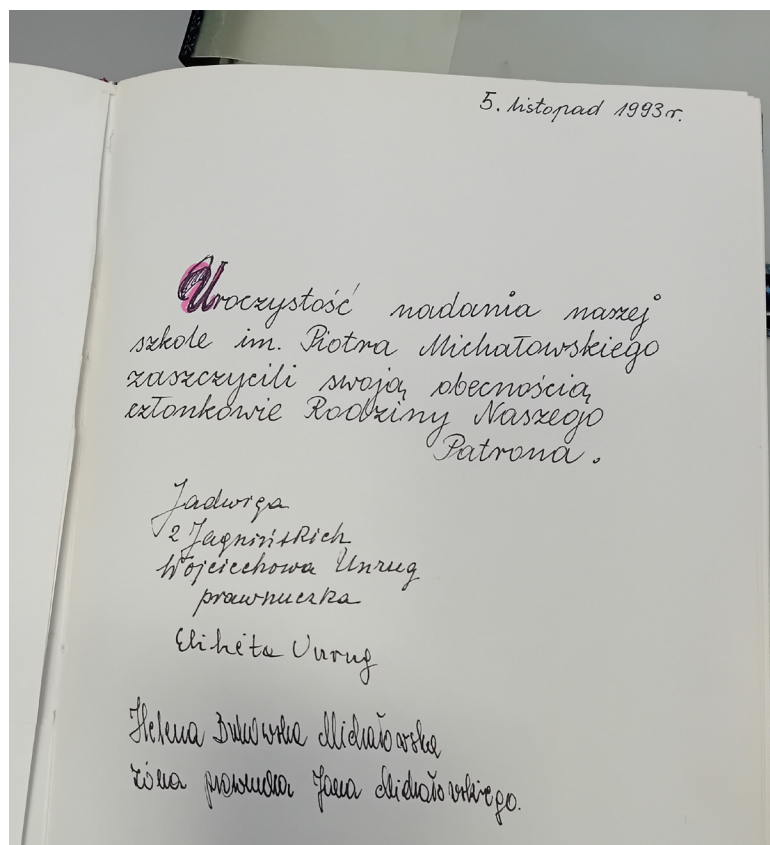 5. listopad 1993 r.
Uroczystość nadania naszej
szkole im. Piotra Michałowskiego
zaszczycili swoją obecnością
członkowie Rodziny Naszego
Patrona.
Jadwiga
z Jagnińskich
Wojciechowa Unrug
prawnuczka
Elżbieta Unrug
Helena Bukowska Michałowska
żona prawnuka Jana Michałowskiego.